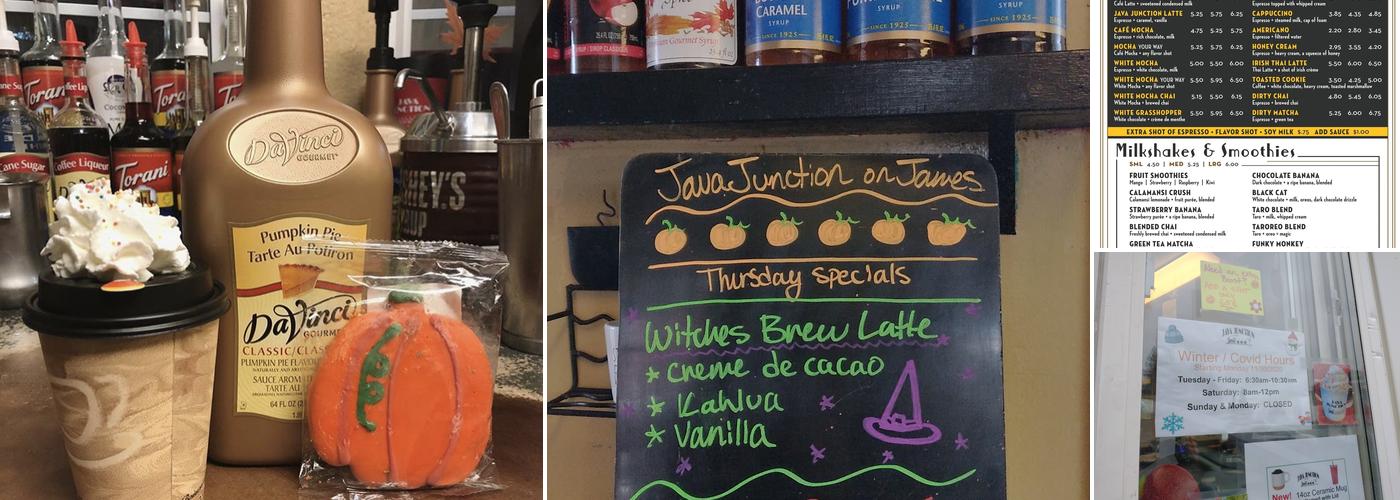 Torani
Torani
Cane Sugar
Coffee Liqueur
Torani
DaVinci
GOURMET
HEY'S
Pumpkin Pie
Tarte Au Potiron
DaVinci
GOURMET
CLASSIC/CLAS
PUMPKIN PIE FLAVO
TARTE AU
64 FL OZ
SYRUP
Spice
CARAMEL
SYRUP
SINCE 1925
SINCE 1925
SINCE 1925
Java Junction on James
Thursday Specials
Witches Brew Latte
* creme de cacao
* Kahlua
* Vanilla
Café Latte • sweetened condensed milk
JAVA JUNCTION LATTE 5.25 5.75 6.25
Espresso • caramel, vanilla
CAFÉ MOCHA 4.75 5.25 5.75
Espresso • rich chocolate, milk
MOCHA YOUR WAY 5.25 5.75 6.25
Café Mocha • any flavor shot
WHITE MOCHA 5.00 5.50 6.00
Espresso • white chocolate, milk
WHITE MOCHA YOUR WAY 5.50 5.95 6.50
White Mocha • any flavor shot
WHITE MOCHA CHAI 5.15 5.50 6.15
White Mocha • brewed chai
WHITE GRASSHOPPER 5.50 5.95 6.50
White chocolate • crème de menthe
Espresso topped with whipped cream
CAPPUCCINO 3.85 4.35 4.85
Espresso • steamed milk, cap of foam
AMERICANO 2.20 2.80 3.45
Espresso • filtered water
HONEY CREAM 2.95 3.55 4.20
Espresso • heavy cream, a squeeze of honey
IRISH THAI LATTE 5.50 6.00 6.50
Thai Latte • a shot of irish crème
TOASTED COOKIE 3.50 4.25 5.00
Coffee • white chocolate, heavy cream, toasted marshmallow
DIRTY CHAI 4.80 5.45 6.05
Espresso • brewed chai
DIRTY MATCHA 5.25 6.00 6.75
Espresso • green tea
EXTRA SHOT OF ESPRESSO • FLAVOR SHOT • SOY MILK $.75 ADD SAUCE $1.00
Milkshakes & Smoothies
SML 4.50 | MED 5.25 | LRG 6.00
FRUIT SMOOTHIES
Mango | Strawberry | Raspberry | Kiwi
CALAMANSI CRUSH
Calamansi lemonade • fruit purée, blended
STRAWBERRY BANANA
Strawberry purée • a ripe banana, blended
BLENDED CHAI
Freshly brewed chai • sweetened condensed milk
GREEN TEA MATCHA
CHOCOLATE BANANA
Dark chocolate • a ripe banana, blended
BLACK CAT
White chocolate • milk, oreos, dark chocolate drizzle
TARO BLEND
Taro • milk, whipped cream
TAROREO BLEND
Taro • oreo • magic
FUNKY MONKEY
Need an extra
Boost?
JAVA JUNCTION
Winter / Covid Hours
Starting Monday
Tuesday - Friday: 6:30am-10:30am
Saturday: 8am-12pm
Sunday & Monday: CLOSED
New!
14oz Ceramic Mug